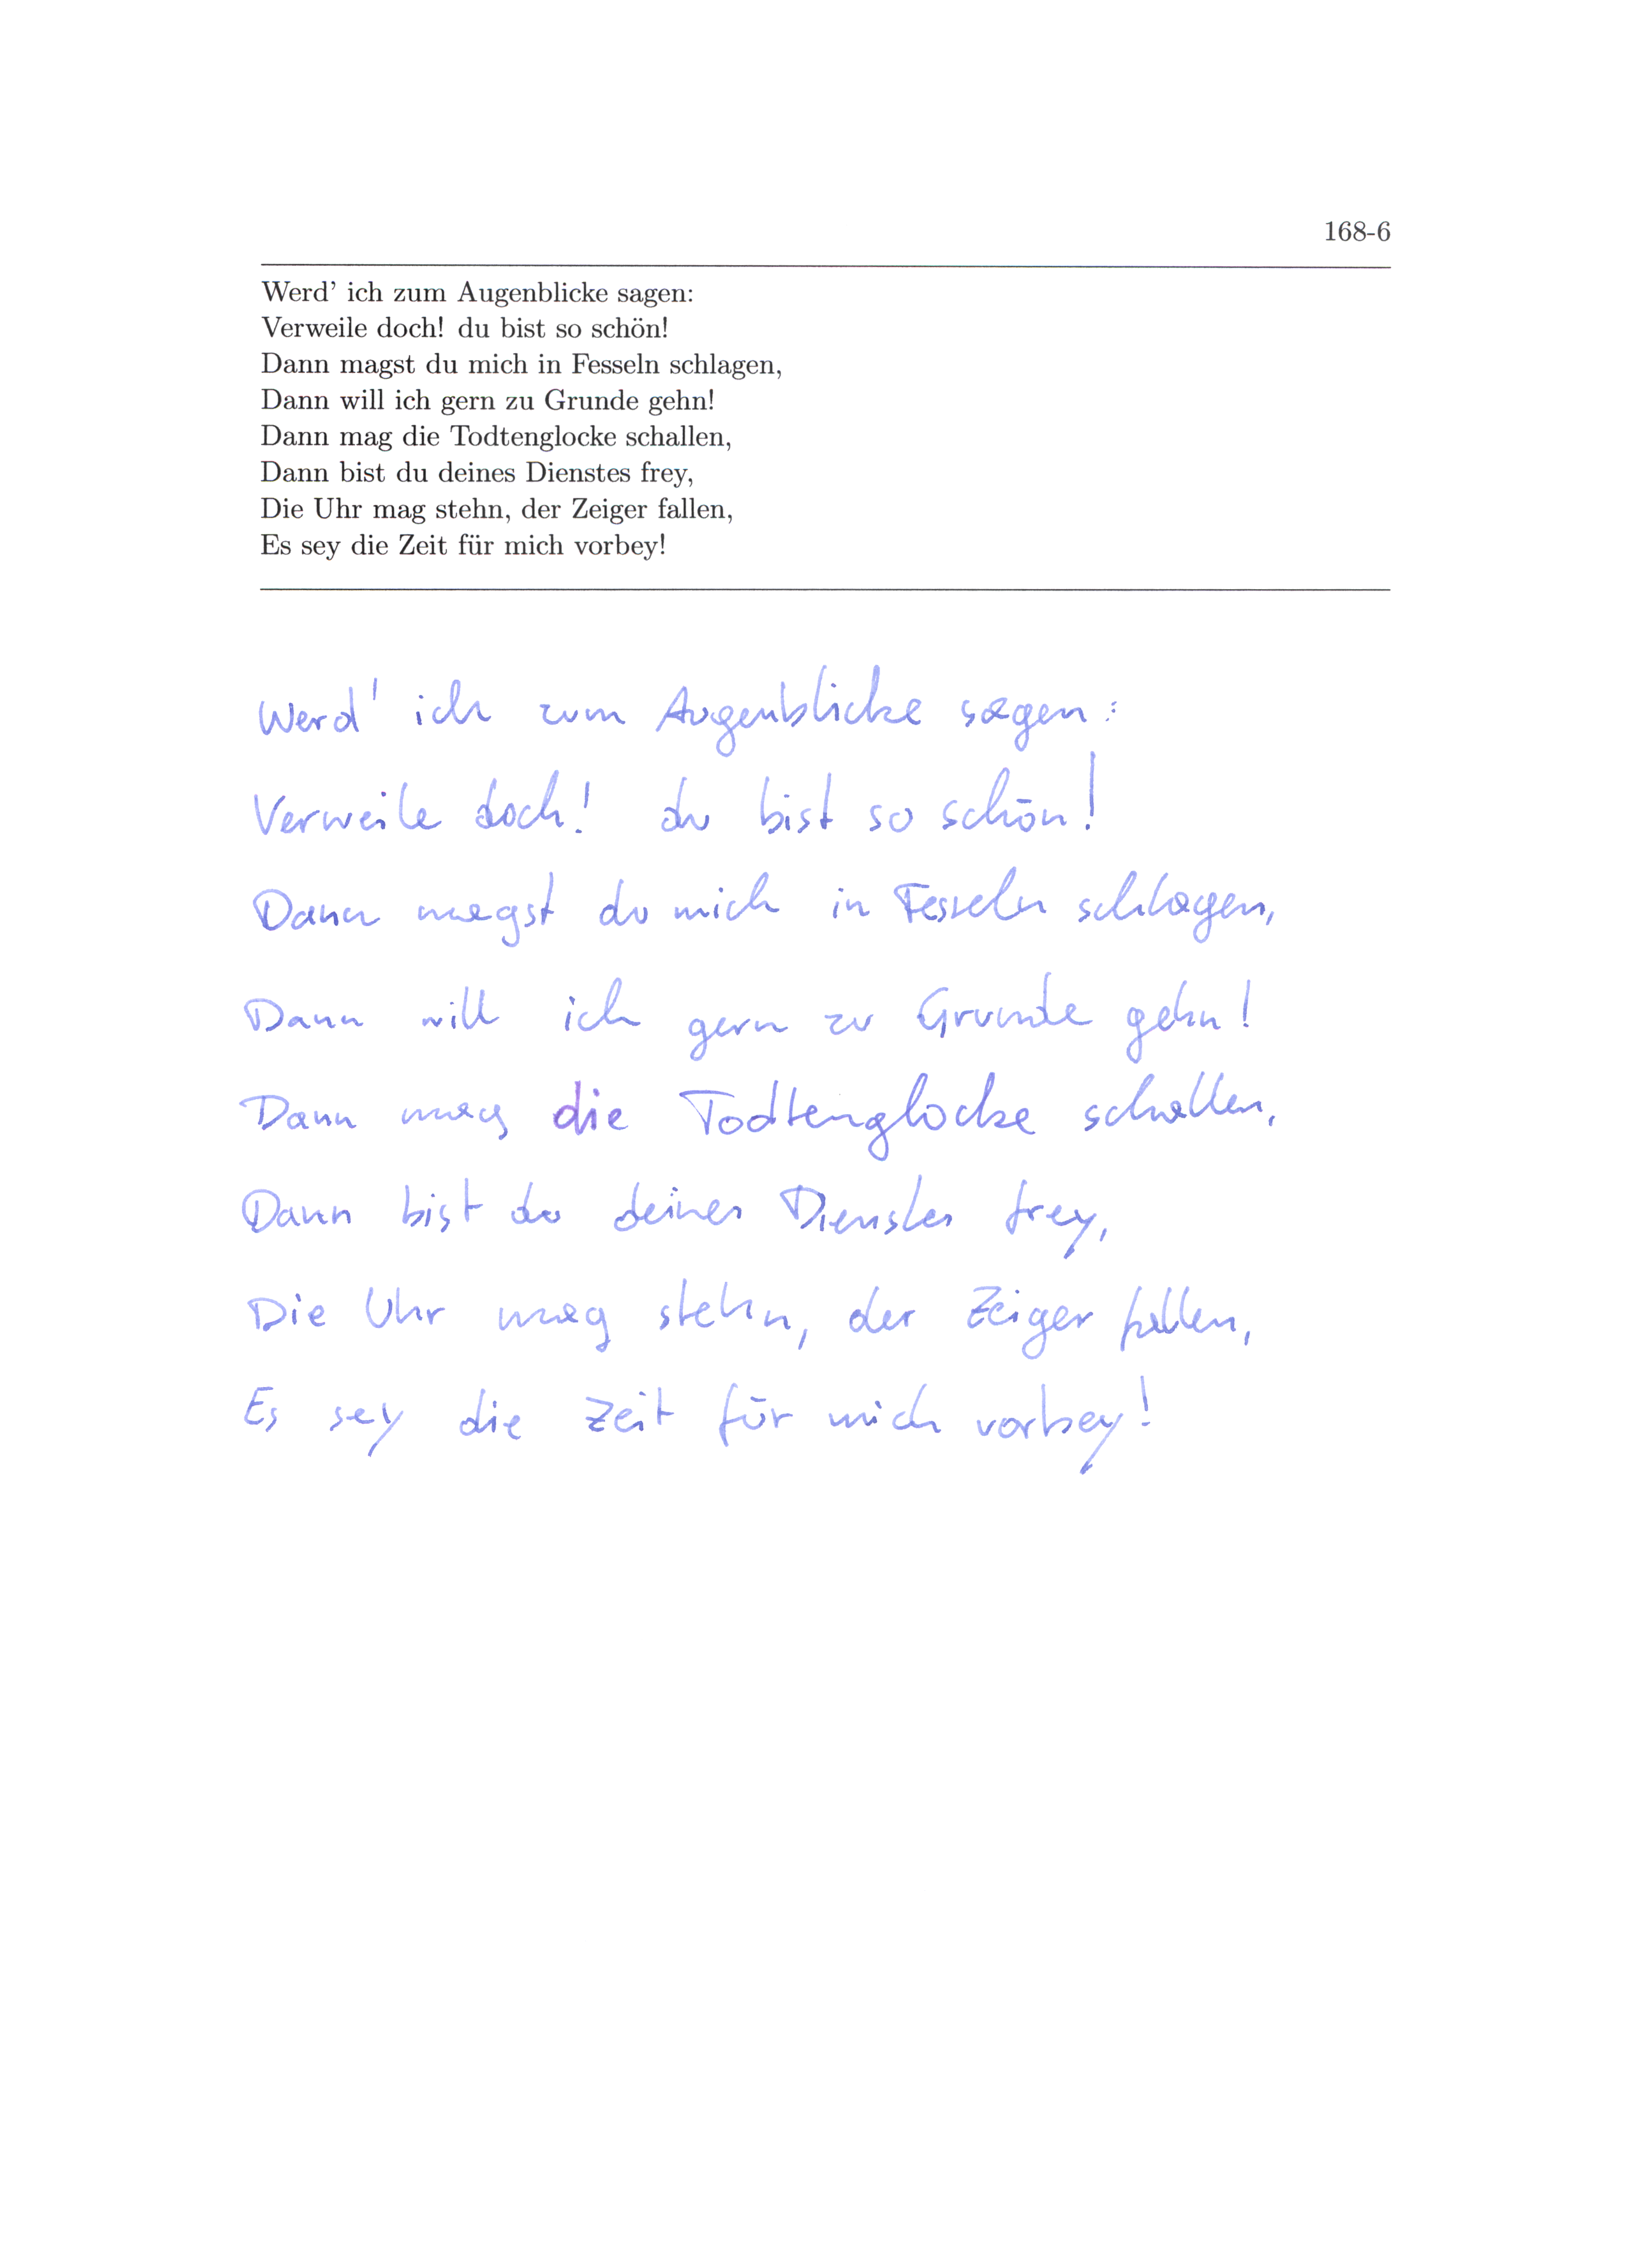 168-6
Werd' ich zum Augenblicke sagen:
Verweile doch! du bist so schön!
Dann magst du mich in Fesseln schlagen,
Dann will ich gern zu Grunde gehn!
Dann mag die Todtenglocke schallen,
Dann bist du deines Dienstes frey,
Die Uhr mag stehn, der Zeiger fallen,
Es sey die Zeit für mich vorbey!
Werd' ich zum Augenblicke sagen:
Verweile doch! du bist so schön!
Dann magst du mich in Fesseln schlagen,
Dann will ich gern zu Grunde gehn!
Dann mag die Todtenglocke schallen,
Dann bist du deines Dienstes frey,
Die Uhr mag stehn, der Zeiger fallen,
Es sey die Zeit für mich vorbey!